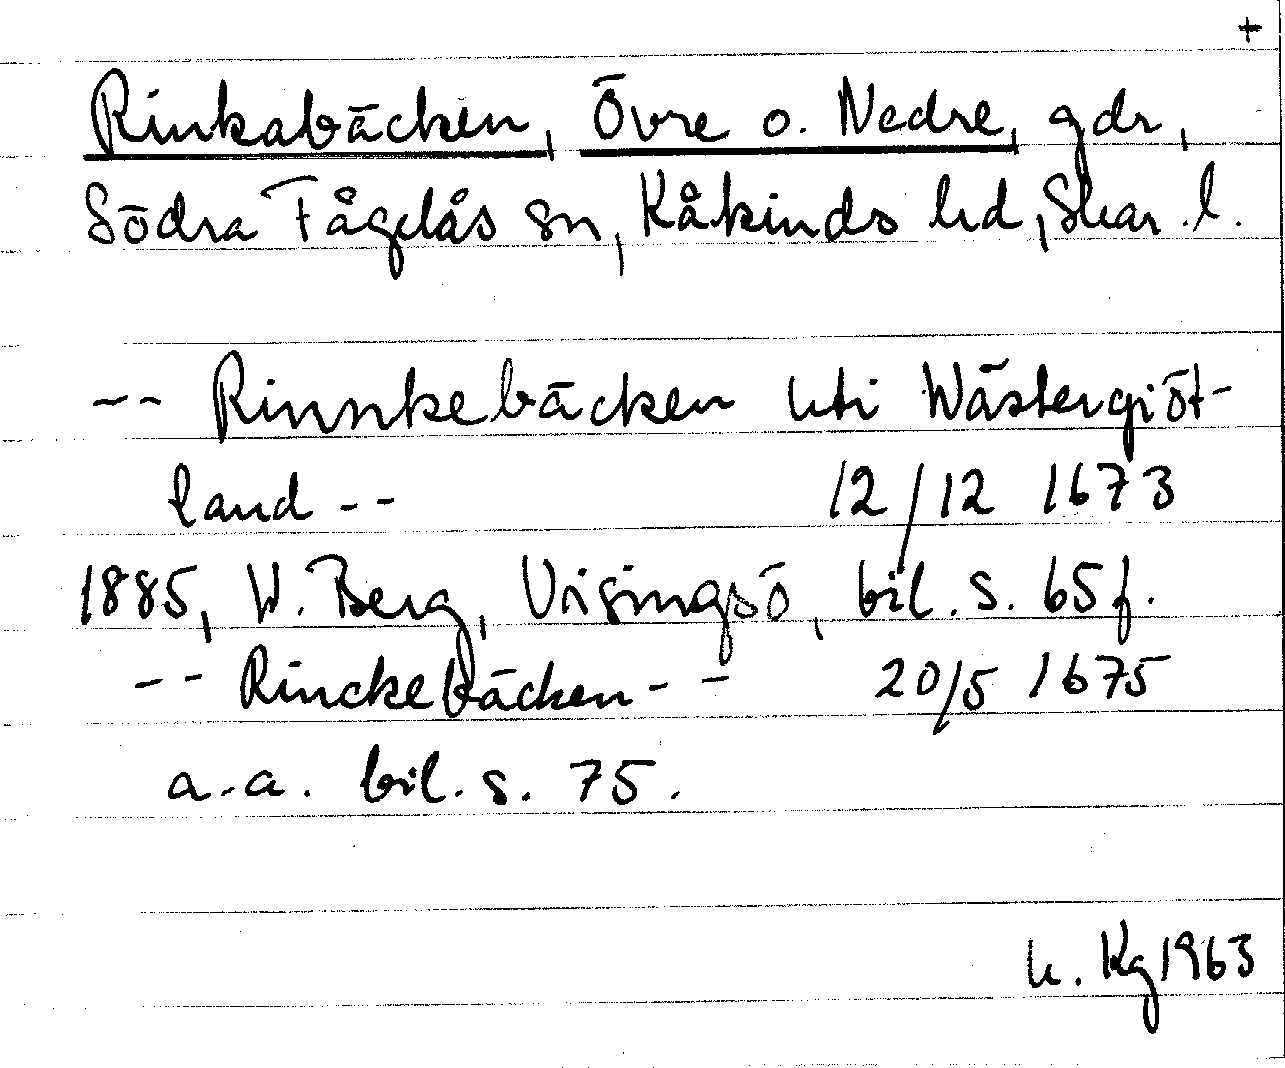 +
Rinkabäcken, Övre o. Nedre, gdr,
Södra Fågelås sn, Kåkinds hd, Skar. l.
-- Rinnkebäcken uti Wästergiöt-
land -- 12/12 1673
1885, W. Berg, Visingsö, bil. s. 65 f.
-- Rinckebäcken -- 20/5 1675
a.a. bil. s. 75.
Kg 1963